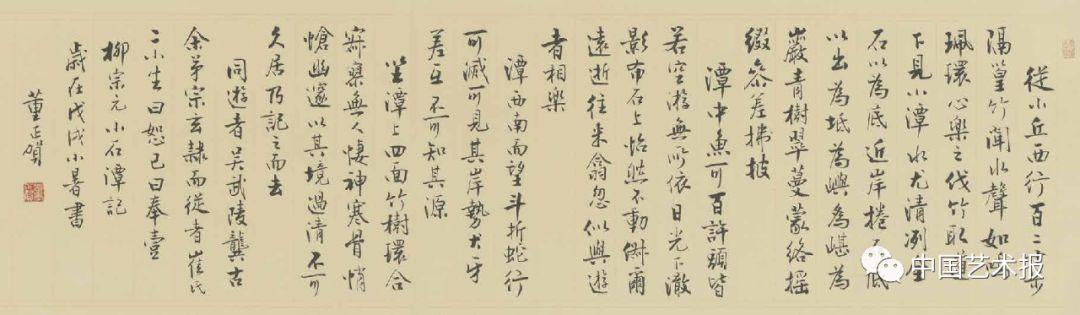 從小丘西行百二十步
隔篁竹聞水聲如鳴
珮環心樂之伐竹取道
下見小潭水尤清冽全
石以為底近岸捲石底
以出為坻為嶼為嵁為
巖青樹翠蔓蒙絡摇
綴參差披拂
潭中魚可百許頭皆
若空游無所依日光下澈
影布石上怡然不動俶爾
遠逝往来翕忽似與遊
者相樂
潭西南而望斗折蛇行
可滅可見其岸勢犬牙
差互不可知其源
坐潭上四面竹樹環合
寂寥無人悽神寒骨悄
愴幽邃以其境過清不可
久居乃記之而去
同遊者吴武陵龔古
余弟宗玄隸而從者崔氏
二小生曰恕己曰奉壹
柳宗元小石潭記
歲在戊戌小暑書
董正賀
中国艺术报